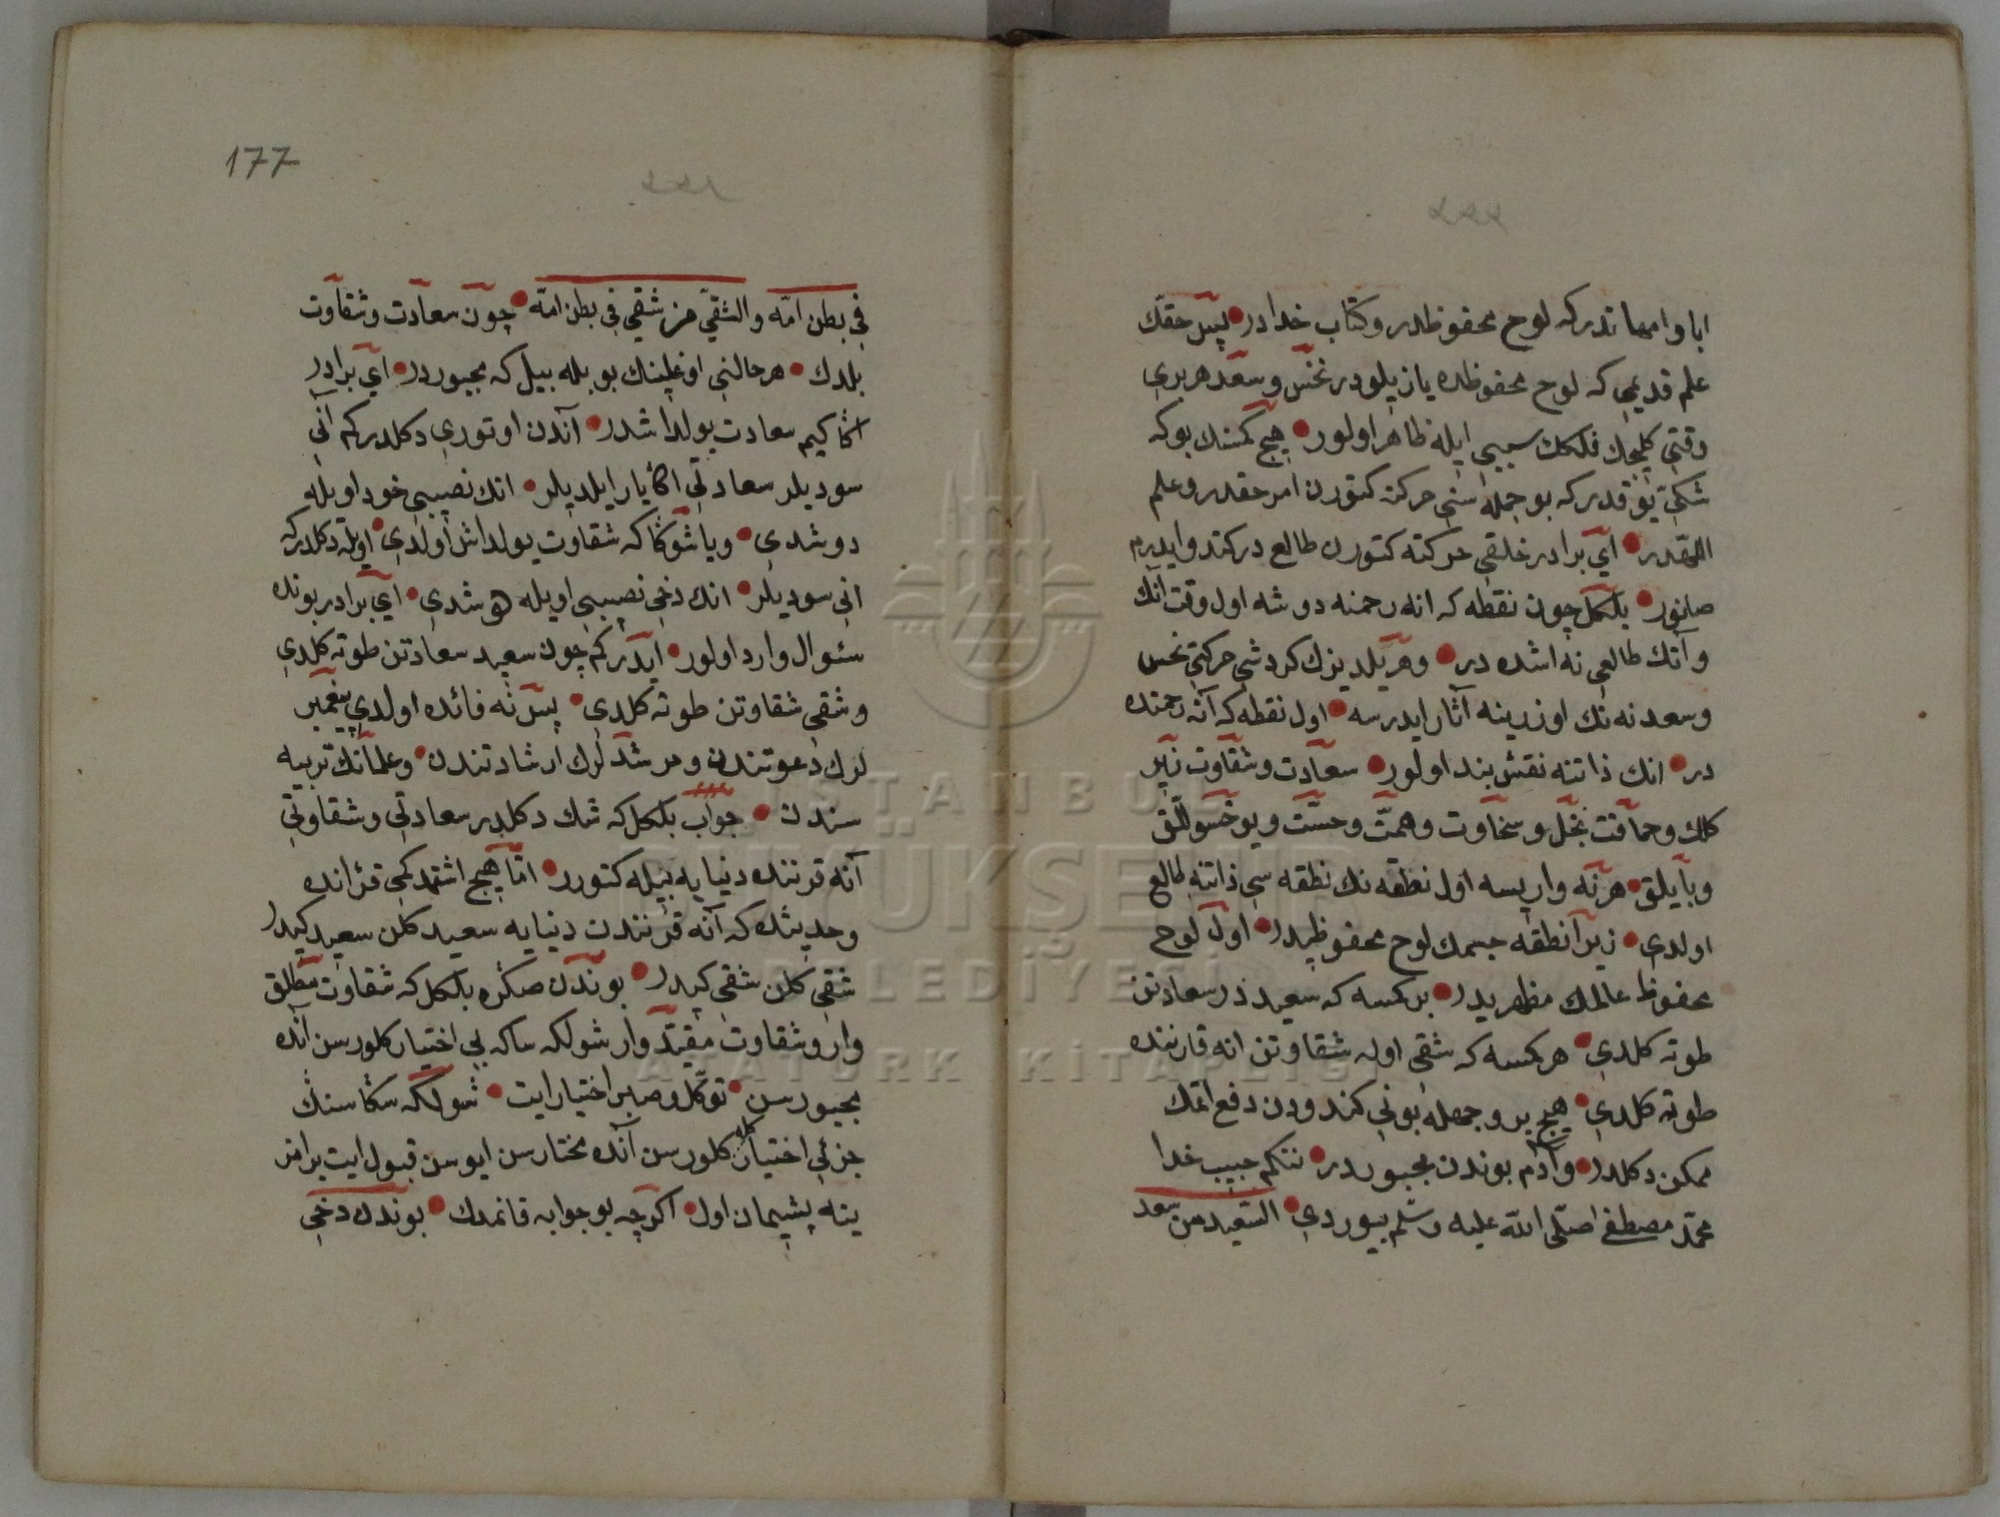 ابا و امهاتدركه لوح محفوظدر وكتاب خدادر پس حقك
علم قديمى كه لوح محفوظده يازيلودر نحس وسعد هربرى
وقتى كليجك فلكك سببى ايله ظاهر اولور هيچ كمسنك بوكه
شكى يوقدركه بو جمله سنى حركته كتورن امر حقدر وعلم
اللهدر اى برادر خلقى حركته كتورن طالع دركندو ايدرم
صانور بلكل چون نقطه كه انه رحمنه دوشه اول وقت انك
وآنك طالعى نه اشده در وهر يلديزك كردشى حركتى نحس
وسعد نه نك اوزرينه آثار ايدرسه اول نقطه كه آنه رحمنده
در انك ذاتنه نقش بند اولور سعادت وشقاوت زير
كلك وحماقت بخل وسخاوت وهمت وخست ويوخسوللق
وبايلق هرنه واريسه اول نطقه نك نطقه سى ذاتنه طالع
اولدى زيرا نطقه جسمك لوح محفوظيدر اول لوح
محفوظ عالمك مظهريدر بركمسه كه سعيد در سعادتن
طوته كلدى هركمسه كه شقى اوله شقاوتن انه قارننده
طوته كلدى هيچ بر وجهله بونى كندودن دفع اتمك
ممكن دكلدر وآدم بوندن مجبوردر نتكم حبيب خدا
محمد مصطفى صلى الله عليه وسلم بيوردى السعيد من سعد
177
فى بطن امه والشقى من شقى فى بطن امه چون سعادت وشقاوت
بلدك هر حالنى اوغلينك بويله بيل كه مجبوردر اى برادر
اكا كيم سعادت يولداشدر آندن اوتورى دكلدركم آنى
سوديلر سعادتى اكا يار ايلديلر انك نصيبى خود اويله
دوشدى ويا شوكا كه شقاوت يولداش اولدى اويله دكلدركه
انى سوديلر انك دخى نصيبى اويله هو شدى اى برادر بونده
سئوال وارد اولور ايدر كم چون سعيد سعادتن طوته كلدى
وشقى شقاوتن طوته كلدى پس نه فائده اولدى پيغمبر
لرك دعوتندن ومرشد لرك ارشادتندن وعلمانك تربيه
سندن جواب بلكل كه شك دكلدر سعادتى وشقاوتى
آنه قرننده دنيايه بيله كتورر اما هيچ اشتمدكمى قرآنده
وحديثده كه آنه قرنندن دنيايه سعيد كلن سعيد كيدر
شقى كلن شقى كيدر بوندن صكره بلكل كه شقاوت مطلق
وار وشقاوت مقيد وار شولكه ساكه بى اختيار كلورسن آنده
مجبورسن توكل وصبر اختيار ايت شولكه سكا سنك
جزئى اختيارك له كلورسن آنده مختارسن ايوسن قبول ايت يرامز
ينه پشيمان اول اكرچه بو جوابه قانمدك بوندن دخى